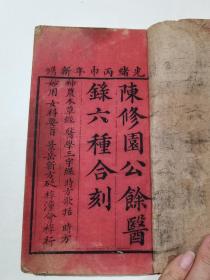 光緒丙申年新鐫
陳修園公餘醫
錄六種合刻
神農本草經 醫學三字經 時方歌括 時方
妙用 女科要旨 景岳新方砭 梓行